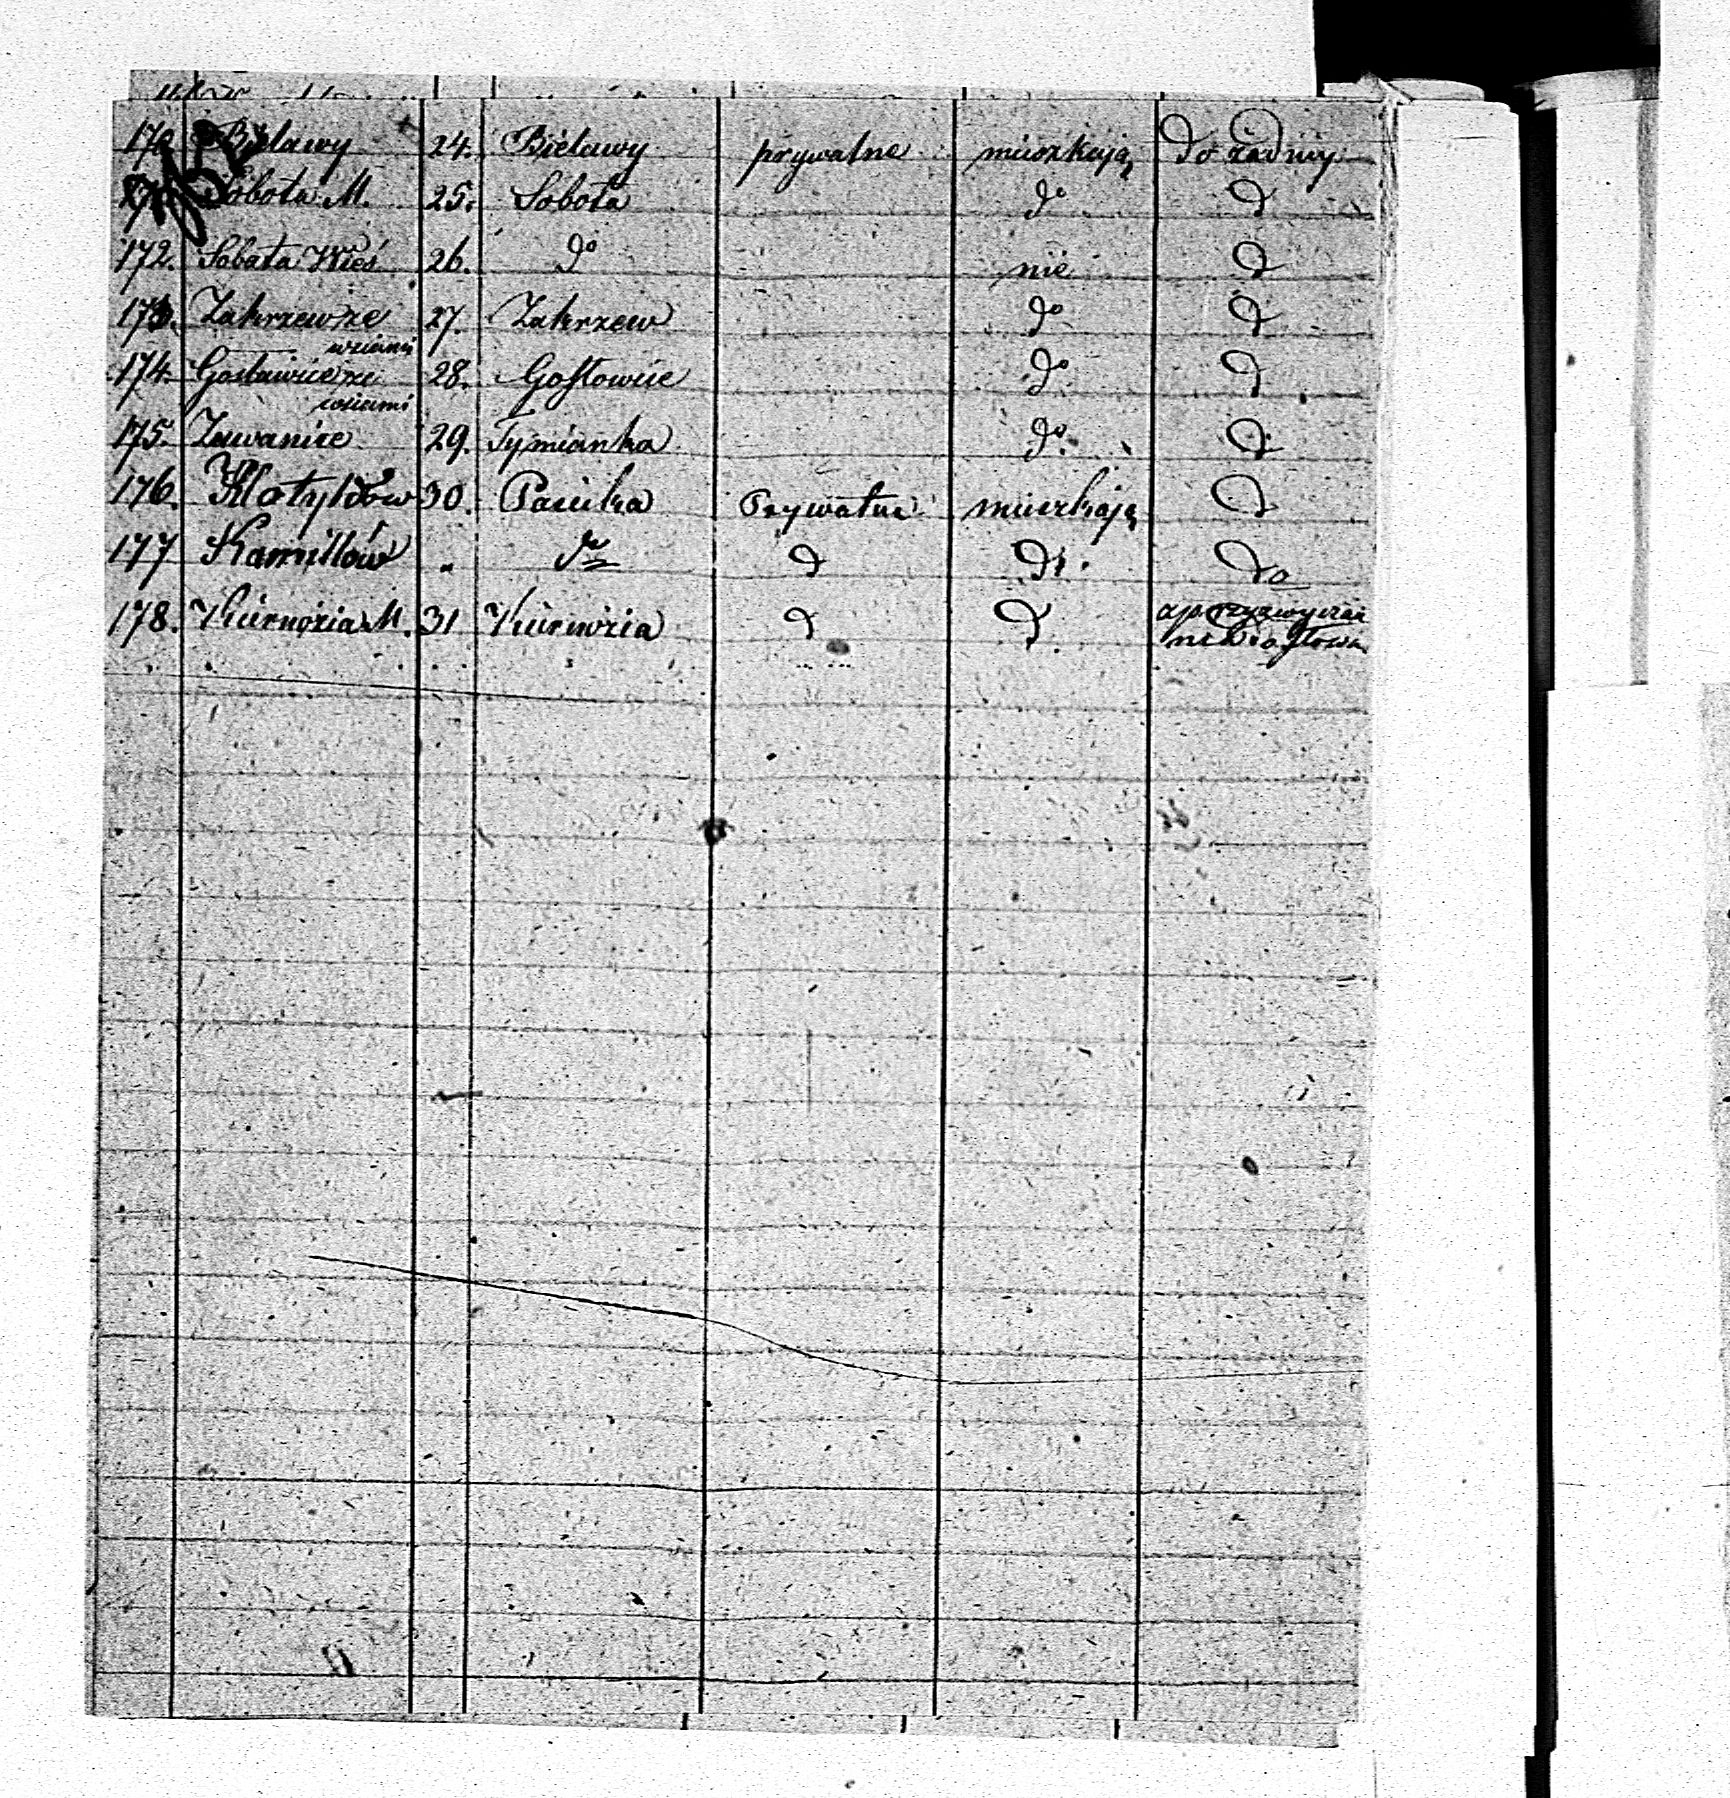 170 Bielawy 24. Bielawy prywatne mieszkają do żadney
171 Sobota M. 25. Sobota do d
172. Sobota Wieś 26. do nie d
173. Zakrzew ze 27. Zakrzew do d
wsiami
174. Gosławice ze 28. Gosławice do d
wsiami
175. Zawanice 29. Tymianka do d
176. Klotyldów 30. Pasieka Prywatne mieszkają d
177 Kamillów " do d do do
178. Kiernozia M. 31 Kiernozia d d